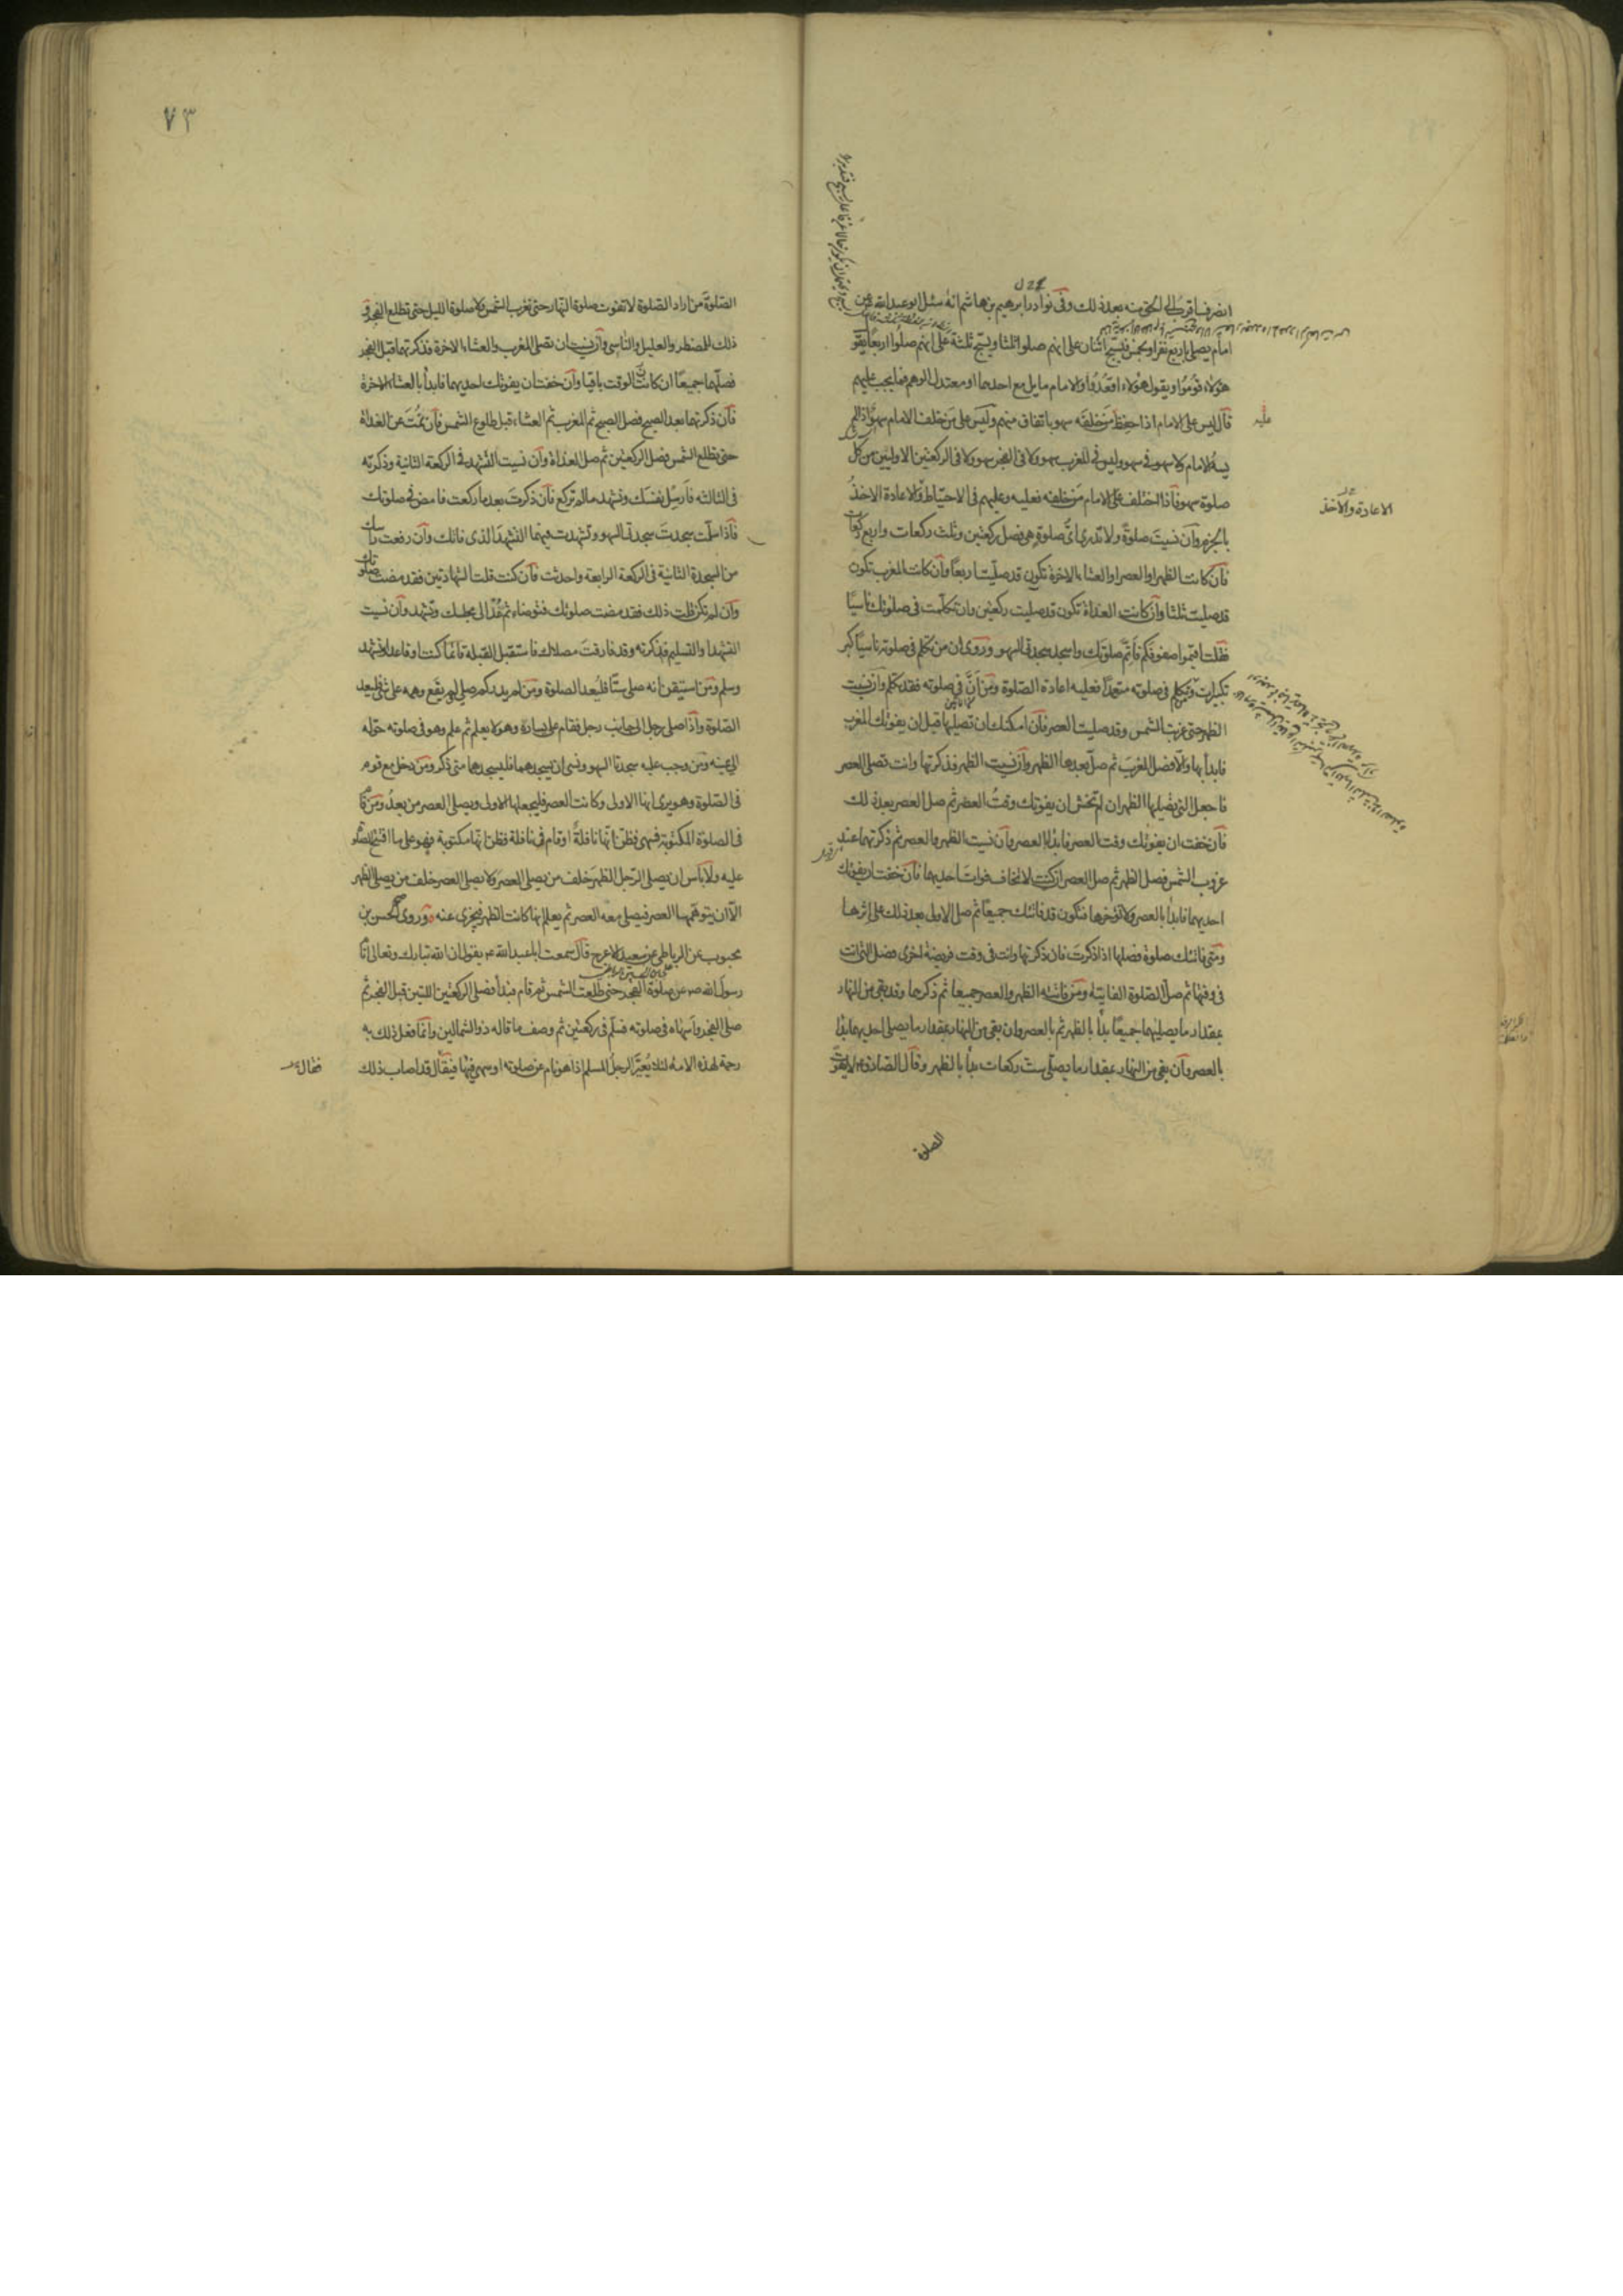 انصرف اقرك الى الحق منه بعد ذلك وفى نوادر ابرهيم بن هاشم انه سئل ابو عبدالله عن
امام يصلى باربع نفر او بخمس فيسبح اثنان على انهم صلوا ثلثا ويسبح ثلثة على انهم صلوا اربعا يقو
هؤلاء قوموا ويقول هؤلاء اقعدوا والامام مايل مع احدهما او معتدل الوهم فما يجب عليهم
قال ليس على الامام اذا حفظ من خلفه سهو باتفاق منهم وليس على من خلف الامام سهو اذا لم
يسه الامام ولا سهو فى سهو وليس فى المغرب سهو ولا فى الفجر سهو ولا فى الركعتين الاوليين من كل
صلوة سهو فاذا اختلف على الامام من خلفه فعليه وعليهم فى الاحتياط والاعادة الاخذ
بالجزم وان نسيت صلوة ولا تدرى اى صلوة هى فصل ركعتين وثلث ركعات واربع ركعات
فان كانت الظهر او العصر او العشاء الاخرة تكون قد صليت اربعا وان كانت المغرب تكون
قد صليت ثلثا وان كانت الغداة تكون قد صليت ركعتين وان تكلمت فى صلوتك ناسيا
فقلت اقيموا صفوفكم فاتم صلوتك واسجد سجدتى السهو وروى ان من تكلم فى صلوته ناسيا كبر
تكبيرات ومن تكلم فى صلوته متعمدا فعليه اعادة الصلوة ومن ان فى صلوته فقد تكلم وان نسيت
الظهر حتى غربت الشمس وقد صليت العصر فان امكنك ان تصليها قبل ان يفوتك المغرب
فابدأ بها والا فصل المغرب ثم صل بعدها الظهر وان نسيت الظهر فذكرتها وانت تصلى العصر
فاجعل التى تصليها الظهر ان لم تخش ان يفوتك وقت العصر ثم صل العصر بعد ذلك
فان خفت ان يفوتك وقت العصر فابدأ بالعصر وان نسيت الظهر والعصر ثم ذكرتهما عند
غروب الشمس فصل الظهر ثم صل العصر ان كنت لا تخاف فوات احديهما فان خفت ان يفوتك
احديهما فابدأ بالعصر ولا تؤخرها فتكون قد فاتتك جميعا ثم صل الاولى بعد ذلك على اثرها
ومتى فاتتك صلوة فصلها اذا ذكرت فان ذكرتها وانت فى وقت فريضة اخرى فصل التى انت
فى وقتها ثم صل الصلوة الفايتة ومن فاتته الظهر والعصر جميعا ثم ذكرهما وقد بقى من النهار
بمقدار ما يصليهما جميعا بدأ بالظهر ثم بالعصر وان بقى من النهار بمقدار ما يصلى احديهما بدأ
بالعصر وان بقى من النهار بمقدار ما يصلى ست ركعات بدأ بالظهر وقال الصادق لا يفوت
الصلوة
عليه
الاعادة والاخذ
٧٣
الصلوة من اراد الصلوة لا تفوت صلوة النهار حتى تغرب الشمس ولا صلوة الليل حتى تطلع الفجر و
ذلك للمضطر والعليل والناسى وان نسيت ان تصلى المغرب والعشاء الاخرة فذكرتهما قبل الفجر
فصلهما جميعا ان كان الوقت باقيا وان خفت ان يفوتك احديهما فابدأ بالعشاء الاخرة
فان ذكرتهما بعد الصبح فصل الصبح ثم المغرب ثم العشاء قبل طلوع الشمس فان نمت عن الغداة
حتى تطلع الشمس فصل الركعتين ثم صل الغداة وان نسيت التشهد فى الركعة الثانية وذكرته
فى الثالثة فارسل نفسك وتشهد ما لم تركع فان ذكرت بعد ما ركعت فامض فى صلوتك
فاذا سلمت سجدت سجدتى السهو وتشهدت فيهما التشهد الذى فاتك وان رفعت راسك
من السجدة الثانية فى الركعة الرابعة واحدثت فان كنت قلت الشهادتين فقد مضت صلوتك
وان لم تكن قلت ذلك فقد مضت صلوتك فتوضاء ثم عد الى مجلسك وتشهد وان نسيت
التشهد او التسليم فذكرته وقد فارقت مصلاك فاستقبل القبلة قائما كنت او قاعدا وتشهد
وسلم ومن استيقن انه صلى ستا فليعد الصلوة ومن لم يدر كم صلى ولم يقع وهمه على شئ فليعد
الصلوة واذا صلى رجل الى جانب رجل فقام على يساره وهو لا يعلم ثم علم وهو فى صلوته حوله
الى يمينه ومن وجب عليه سجدتا السهو ونسى ان يسجدهما فليسجدهما متى ذكر ومن دخل مع قوم
فى الصلوة وهو يرى انها الاولى وكانت العصر فليجعلها الاولى ويصلى العصر من بعد ومن قام
فى الصلوة المكتوبة فسهى فظن انها نافلة او قام فى نافلة فظن انها مكتوبة فهو على ما افتتح الصلوة
عليه ولا باس ان يصلى الرجل الظهر خلف من يصلى العصر ولا يصلى العصر خلف من يصلى الظهر
الا ان يتوهمها العصر فيصلى معه العصر ثم يعلم انها كانت الظهر فيجزى عنه وروى الحسن بن
محبوب عن الرباطى عن سعيد الاعرج قال سمعت ابا عبدالله يقول ان الله تبارك وتعالى انام
رسول الله ص عن صلوة الفجر حتى طلعت الشمس ثم قام فبدأ فصلى الركعتين اللتين قبل الفجر ثم
صلى الفجر واسهاه فى صلوته فسلم فى ركعتين ثم وصف ما قاله ذو الشمالين وانما فعل ذلك به
رحمة لهذه الامة لئلا يعير الرجل المسلم اذا هو نام عن صلوته او سهى فيها فيقال قد اصاب ذلك
فقال